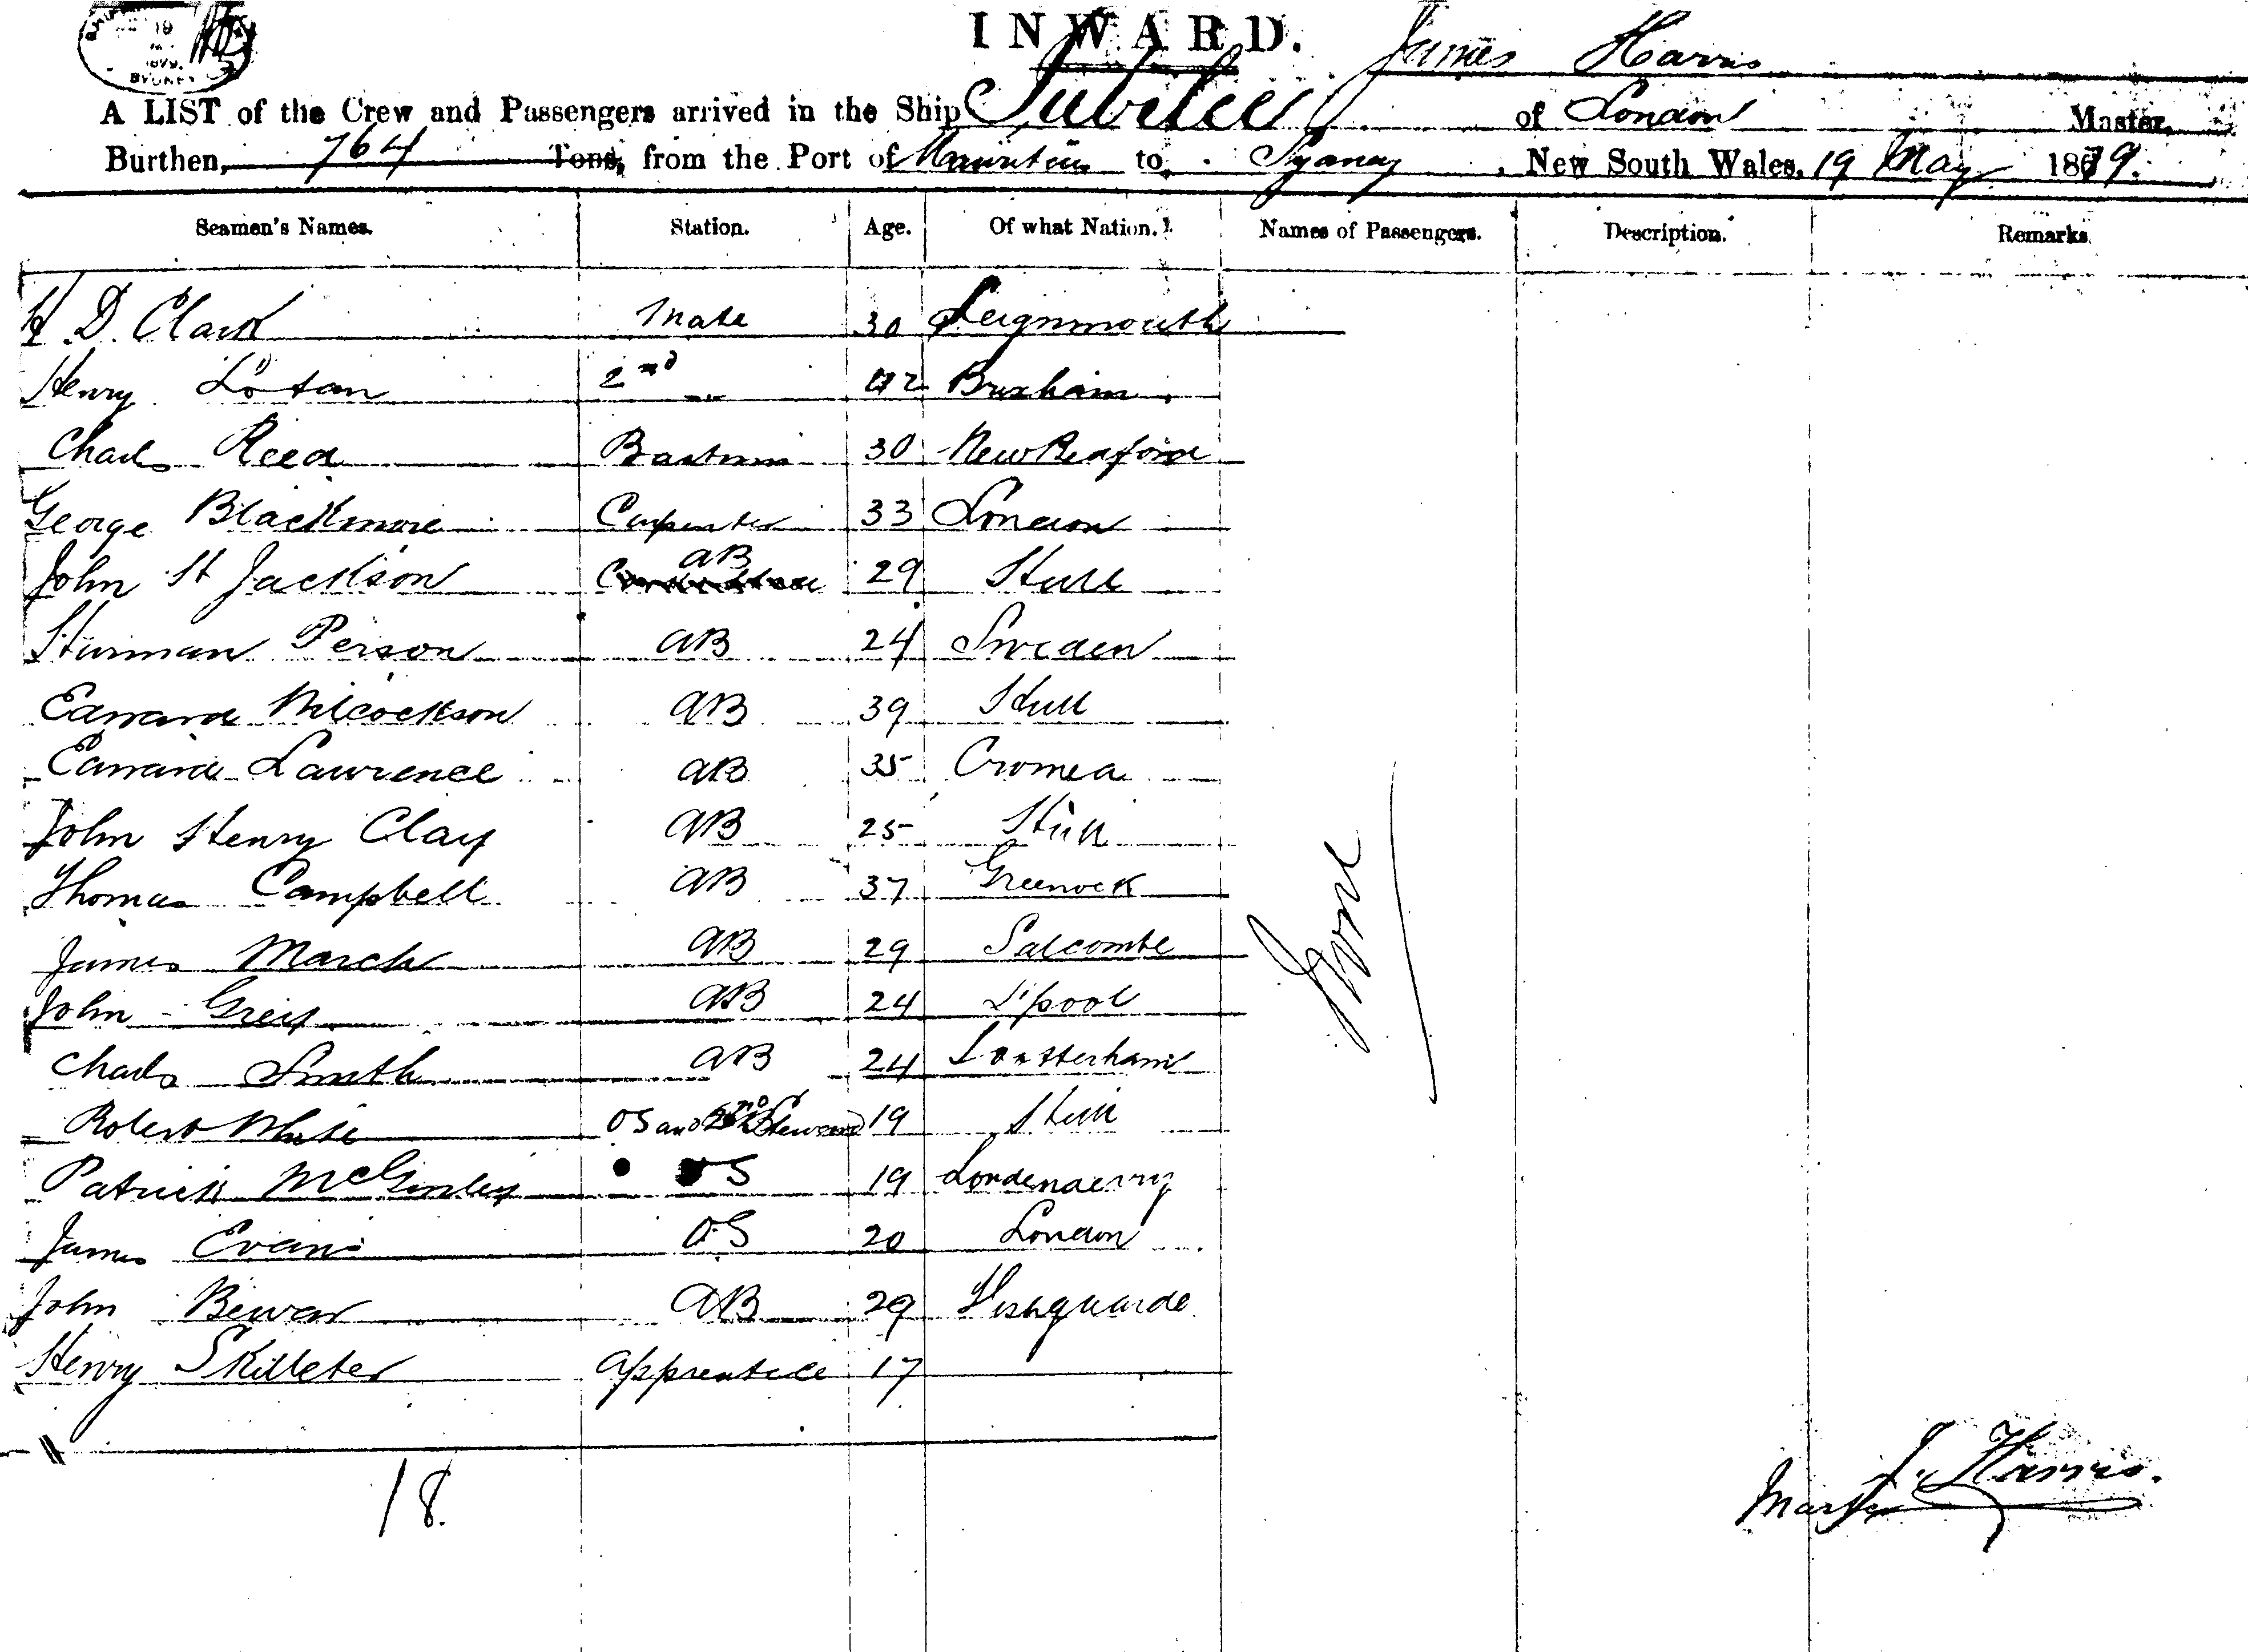 19
1879.
SYDNEY
INWARD.
James Harris
A LIST of the Crew and Passengers arrived in the Ship Jubilee of London Master,
Burthen, 764 Tons, from the Port of Mauritius to Sydney, New South Wales, 19 May 1879.
Seamen's Names. Station. Age. Of what Nation. Names of Passengers. Description. Remarks.
H D. Clark Mate 30 Teignmouth
Henry Lotan 2nd " 42 Brixham
Charls Reed Boatswain 30 New Bedford
George Blackmore Carpenter 33 London
John H Jackson AB 29 Hull
Hurman Person AB 24 Sweden
Edward Wilcockson AB 39 Hull
Edward Lawrence AB 35 Cromea
John Henry Clay AB 25 Hull
Thomas Campbell AB 37 Greenock
James March AB 29 Salcombe
John Greig AB 24 L'pool
Charls Smith AB 24
Robert White OS and 2nd Steward 19 Hull
Patrick McGinley OS 19 Londenderry
James Evans OS 20 London
John Bevan AB 29 Fishguarde
Henry Skilleter Apprentice 17
None
18.
J. Harris.
Master